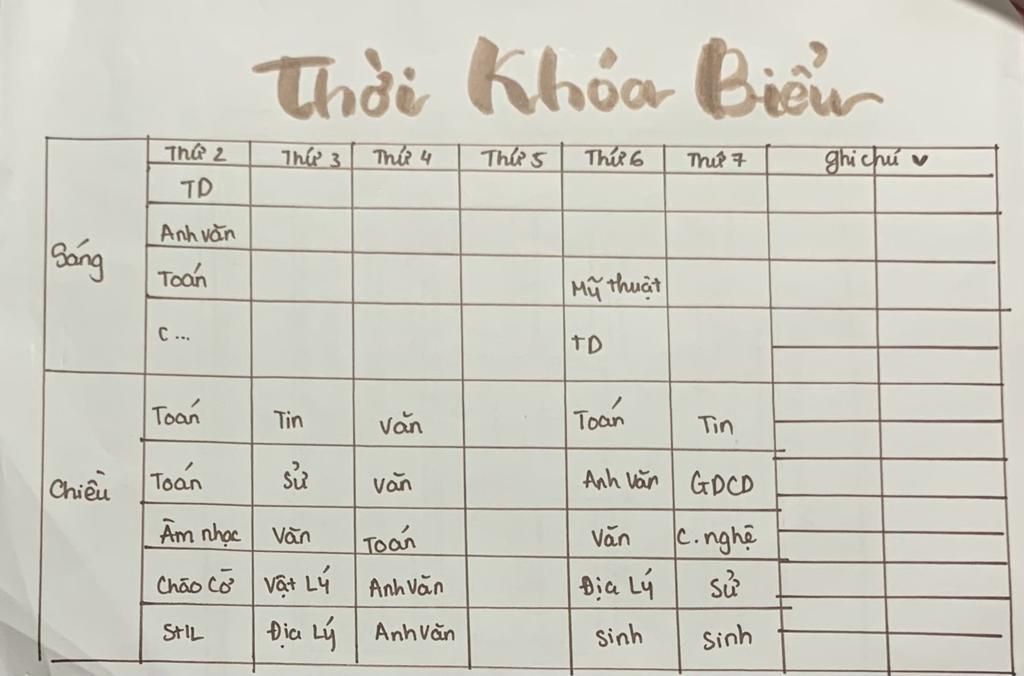 Thời Khóa Biểu
Thứ 2 Thứ 3 Thứ 4 Thứ 5 Thứ 6 Thứ 7 Ghi chú ♥
Sáng
TD
Anh văn
Toán Mỹ thuật
C... TD
Chiều
Toán Tin Văn Toán Tin
Toán Sử Văn Anh Văn GDCD
Âm nhạc Văn Toán Văn C.nghệ
Chào Cờ Vật Lý Anh Văn Địa Lý Sử
SHL Địa Lý Anh Văn Sinh Sinh